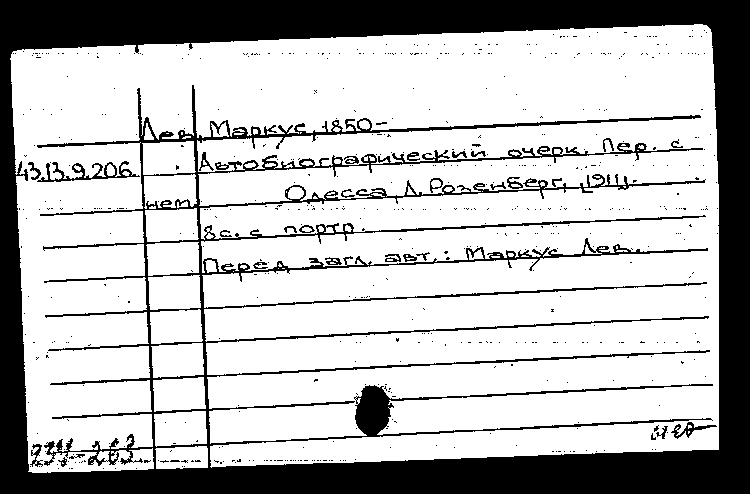 Лев, Маркус, 1850–
43.13.9.206. Автобиографический очерк. Пер. с
нем. Одесса, Л. Розенберг, [1911].
8с. с портр.
Перед загл. авт.: Маркус Лев.